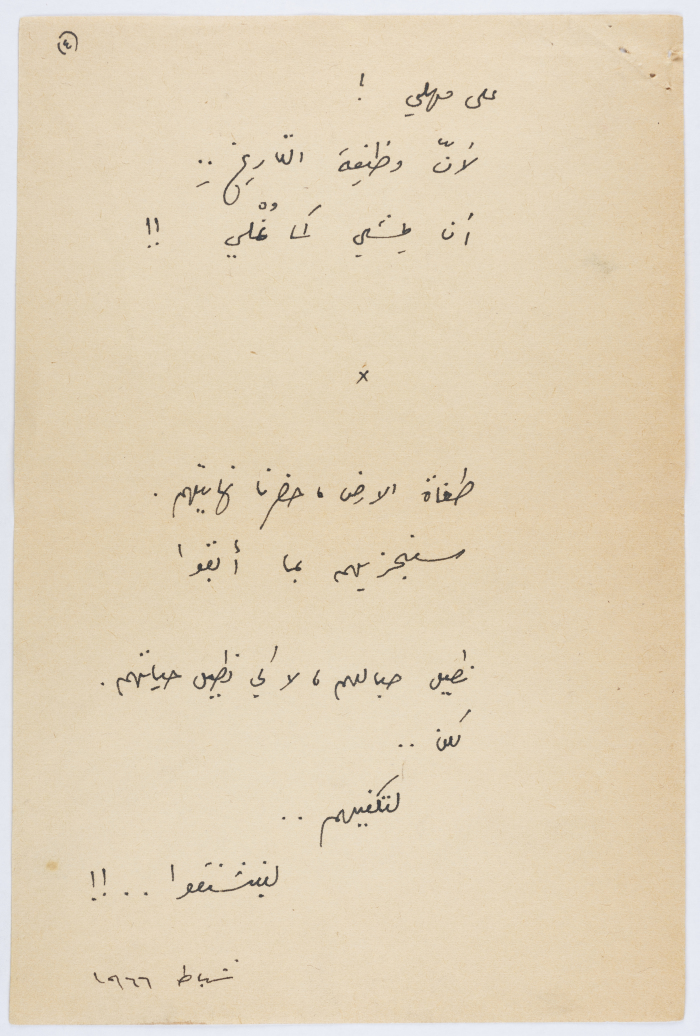 (٤)
على مهلي !
لأنّ وظيفة التاريخِ ..
أن يمشي كما نُمْلي !!
x
طغاة الارض، حضرنا نهايتهم .
سنجزيهم بما أبقوا
نطيل حبالهم، لا كي نطيل حياتهم .
لكن ..
لتكفيهم ..
لينشنقوا ..!!
شباط ١٩٦٦